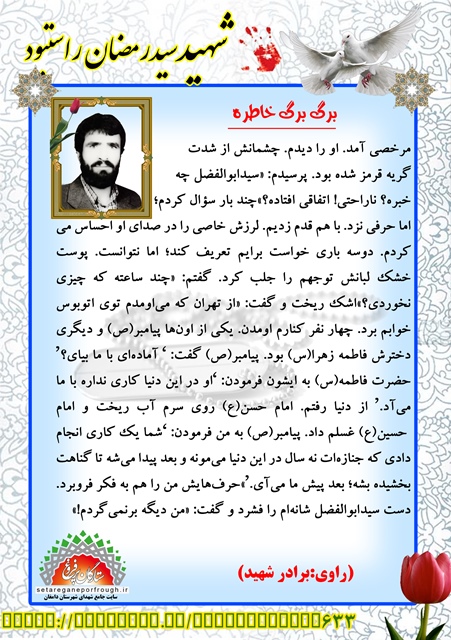 شهید سید رمضان راستبود
برگ برگ خاطره
مرخصی آمد. او را دیدم. چشمانش از شدت
گریه قرمز شده بود. پرسیدم: «سیدابوالفضل چه
خبره؟ ناراحتی! اتفاقی افتاده؟»چند بار سؤال کردم؛
اما حرفی نزد. با هم قدم زدیم. لرزش خاصی را در صدای او احساس می
کردم. دوسه باری خواست برایم تعریف کند؛ اما نتوانست. پوست
خشک لبانش توجهم را جلب کرد. گفتم: «چند ساعته که چیزی
نخوردی؟»اشک ریخت و گفت: «از تهران که می‌اومدم توی اتوبوس
خوابم برد. چهار نفر کنارم اومدن. یکی از اون‌ها پیامبر(ص) و دیگری
دخترش فاطمه زهرا(س) بود. پیامبر(ص) گفت: ‘ آماده‌ای با ما بیای؟’
حضرت فاطمه(س) به ایشون فرمودن: ‘او در این دنیا کاری نداره با ما
می‌آد.’ از دنیا رفتم. امام حسن(ع) روی سرم آب ریخت و امام
حسین(ع) غسلم داد. پیامبر(ص) به من فرمودن: ‘شما یک کاری انجام
دادی که جنازه‌ات نه سال در این دنیا می‌مونه و بعد پیدا می‌شه تا گناهت
بخشیده بشه؛ بعد پیش ما می‌آی.’»حرف‌هایش من را هم به فکر فروبرد.
دست سیدابوالفضل شانه‌ام را فشرد و گفت: «من دیگه برنمی‌گردم!»
(راوی:برادر شهید)
setareganeporfrough.ir
سایت جامع شهدای شهرستان دامغان
۶۳۳